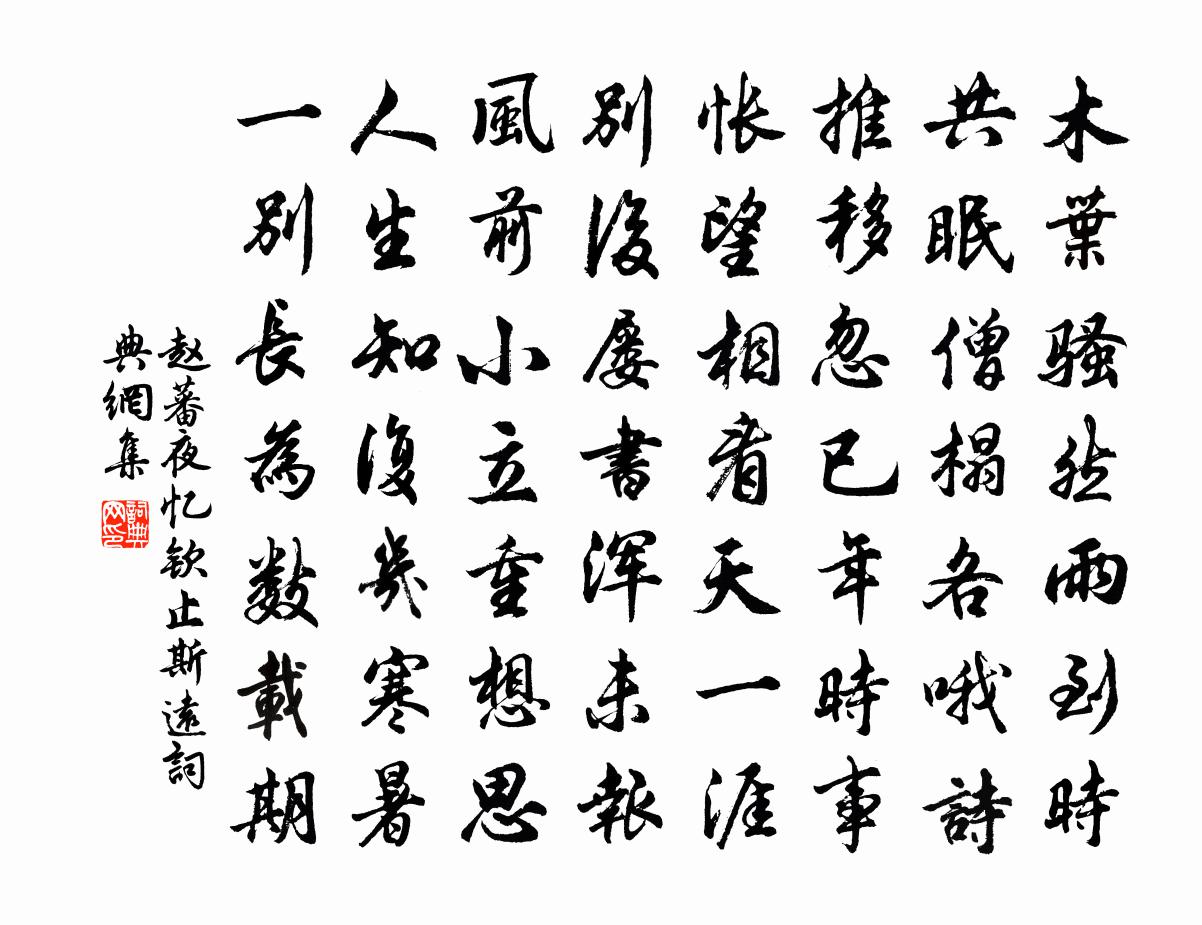 木葉騷然雨到時
共眠僧榻各哦詩
推移忽已年時事
悵望相看天一涯
別後屡書浑未報
風前小立重想思
人生知復幾寒暑
一別長為數載期
赵蕃夜忆欽止斯遠詞
典網集
詞典网印